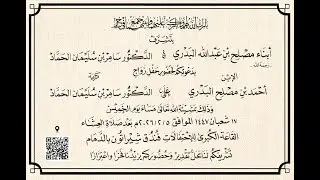 يتشرف
أبناء مصلح بن عبدالله البدري و الدكتور سامر بن سليمان الحماد
رحمه الله
بدعوتكم لحضور حفل زواج
الابن كريمة
أحمد بن مصلح البدري على الدكتور سامر بن سليمان الحماد
وذلك بمشيئة الله تعالى مساء يوم الخميس
١٧ شعبان ١٤٤٧ الموافق ٢٠٢٦/٢/٥م بعد صلاة العشاء
القاعة الكبرى للاحتفالات فندق شيراتون بالدمام
تشريفكم لنا محل تقدير وحضوركم يزيدنا فخرا واعتزازا